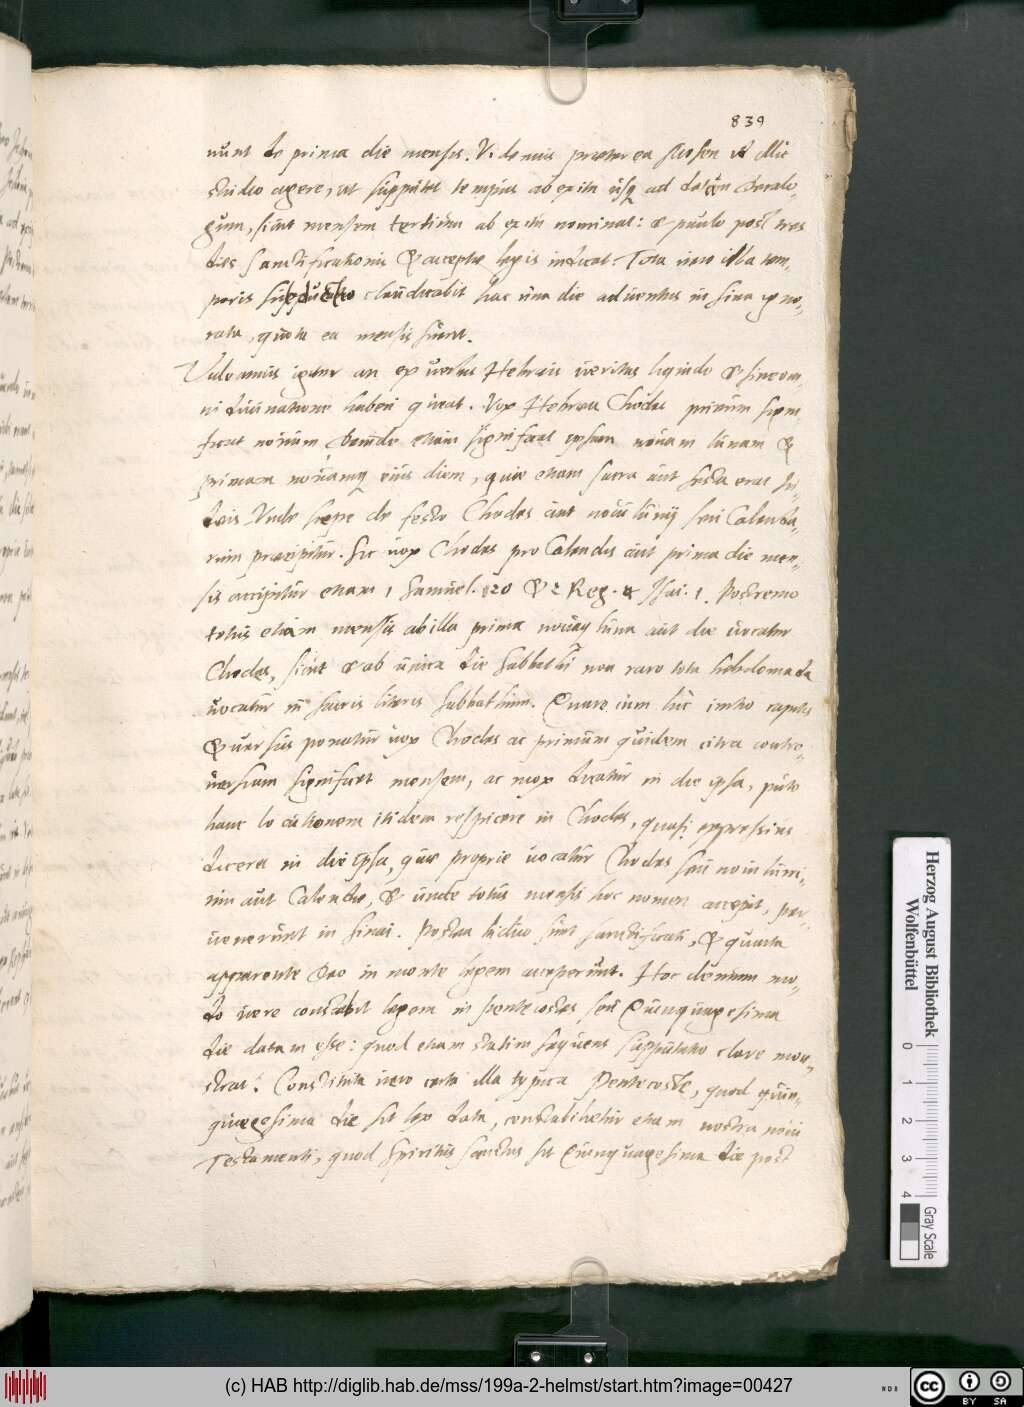 839
nunt de prima die mensis. Videmus praeterea Mosen et illic
studio agere, ut supputet tempus ab exitu usq ad datum Decalo-
gum, sicut mensem tertium ab exitu nominat: & paulo post tres
dies sanctificationis & acceptae legis indicat. Tota vero illa tem-
poris subductio claudicabit hac una die adventus in Sina igno-
rata, quota ea mensis fuerit.
Videamus igitur an ex verbis Hebraeis veritas liquido & sine om-
ni divinatione haberi queat. Vox Hebraea Chodes primum signi-
ficat novum, deinde etiam significat ipsam novam lunam &
primam novamq eius diem, quae etiam sacra aut festa erat Iu-
daeis. Unde saepe de festo Chodes aut novilunij seu Calenda-
rum praecipitur. Sic vox Chodes pro Calendis aut prima die men-
sis accipitur etiam 1 Samuel. 20 & 2 Reg. 4 Isai. 1. Postremo
totus etiam mensis ab illa prima novaq luna aut die vocatur
Chodes, sicut & ab unica die Sabbathi non raro tota hebdomada
vocatur in sacris literis Sabbathum. Quare cum hic initio capitis
& versus ponatur vox Chodes ac primum quidem citra contro-
versiam significet mensem, ac mox dicatur in die ipsa, puto
hanc locutionem itidem respicere in Chodes, quasi expressius
diceret in die ipsa, quae proprie vocatur Chodes seu novilun-
nium aut Calendae, & unde totus mensis hoc nomen accepit, per-
venerunt in Sinai. Postea biduo sunt sanctificati, & quarta
apparente Deo in monte legem acceperunt. Hoc demum mo-
do vere constabit legem in Pentecostes seu Quinquagesima
die datam esse: quod etiam statim sequens supputatio clare mon-
strat. Constituta vero certa illa typica Pentecoste, quod quin-
quagesima die sit lex data, constabilietur etiam nostra novi
Testamenti, quod Spiritus sanctus sit Quinquagesima die post
Herzog August Bibliothek
Wolfenbüttel
0 1 2 3 4
Gray Scale
(c) HAB http://diglib.hab.de/mss/199a-2-helmst/start.htm?image=00427
cc BY SA